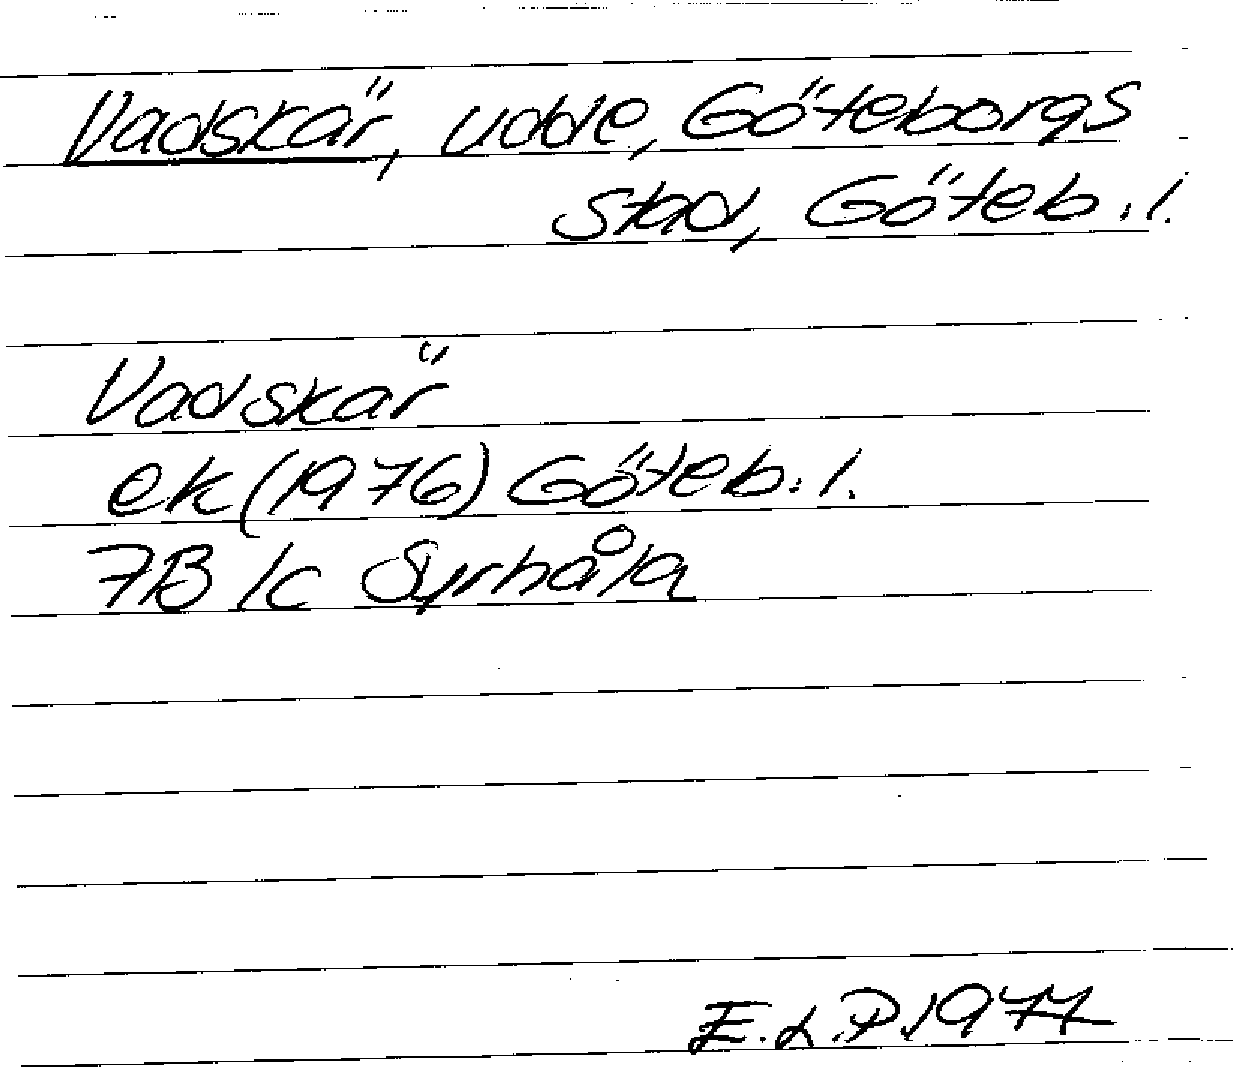 Vadskär, udde, Göteborgs
stad, Göteb. l.
Vadskär
ek (1976) Göteb. l.
7B 1c Syrhåla
E.L.P. 1977